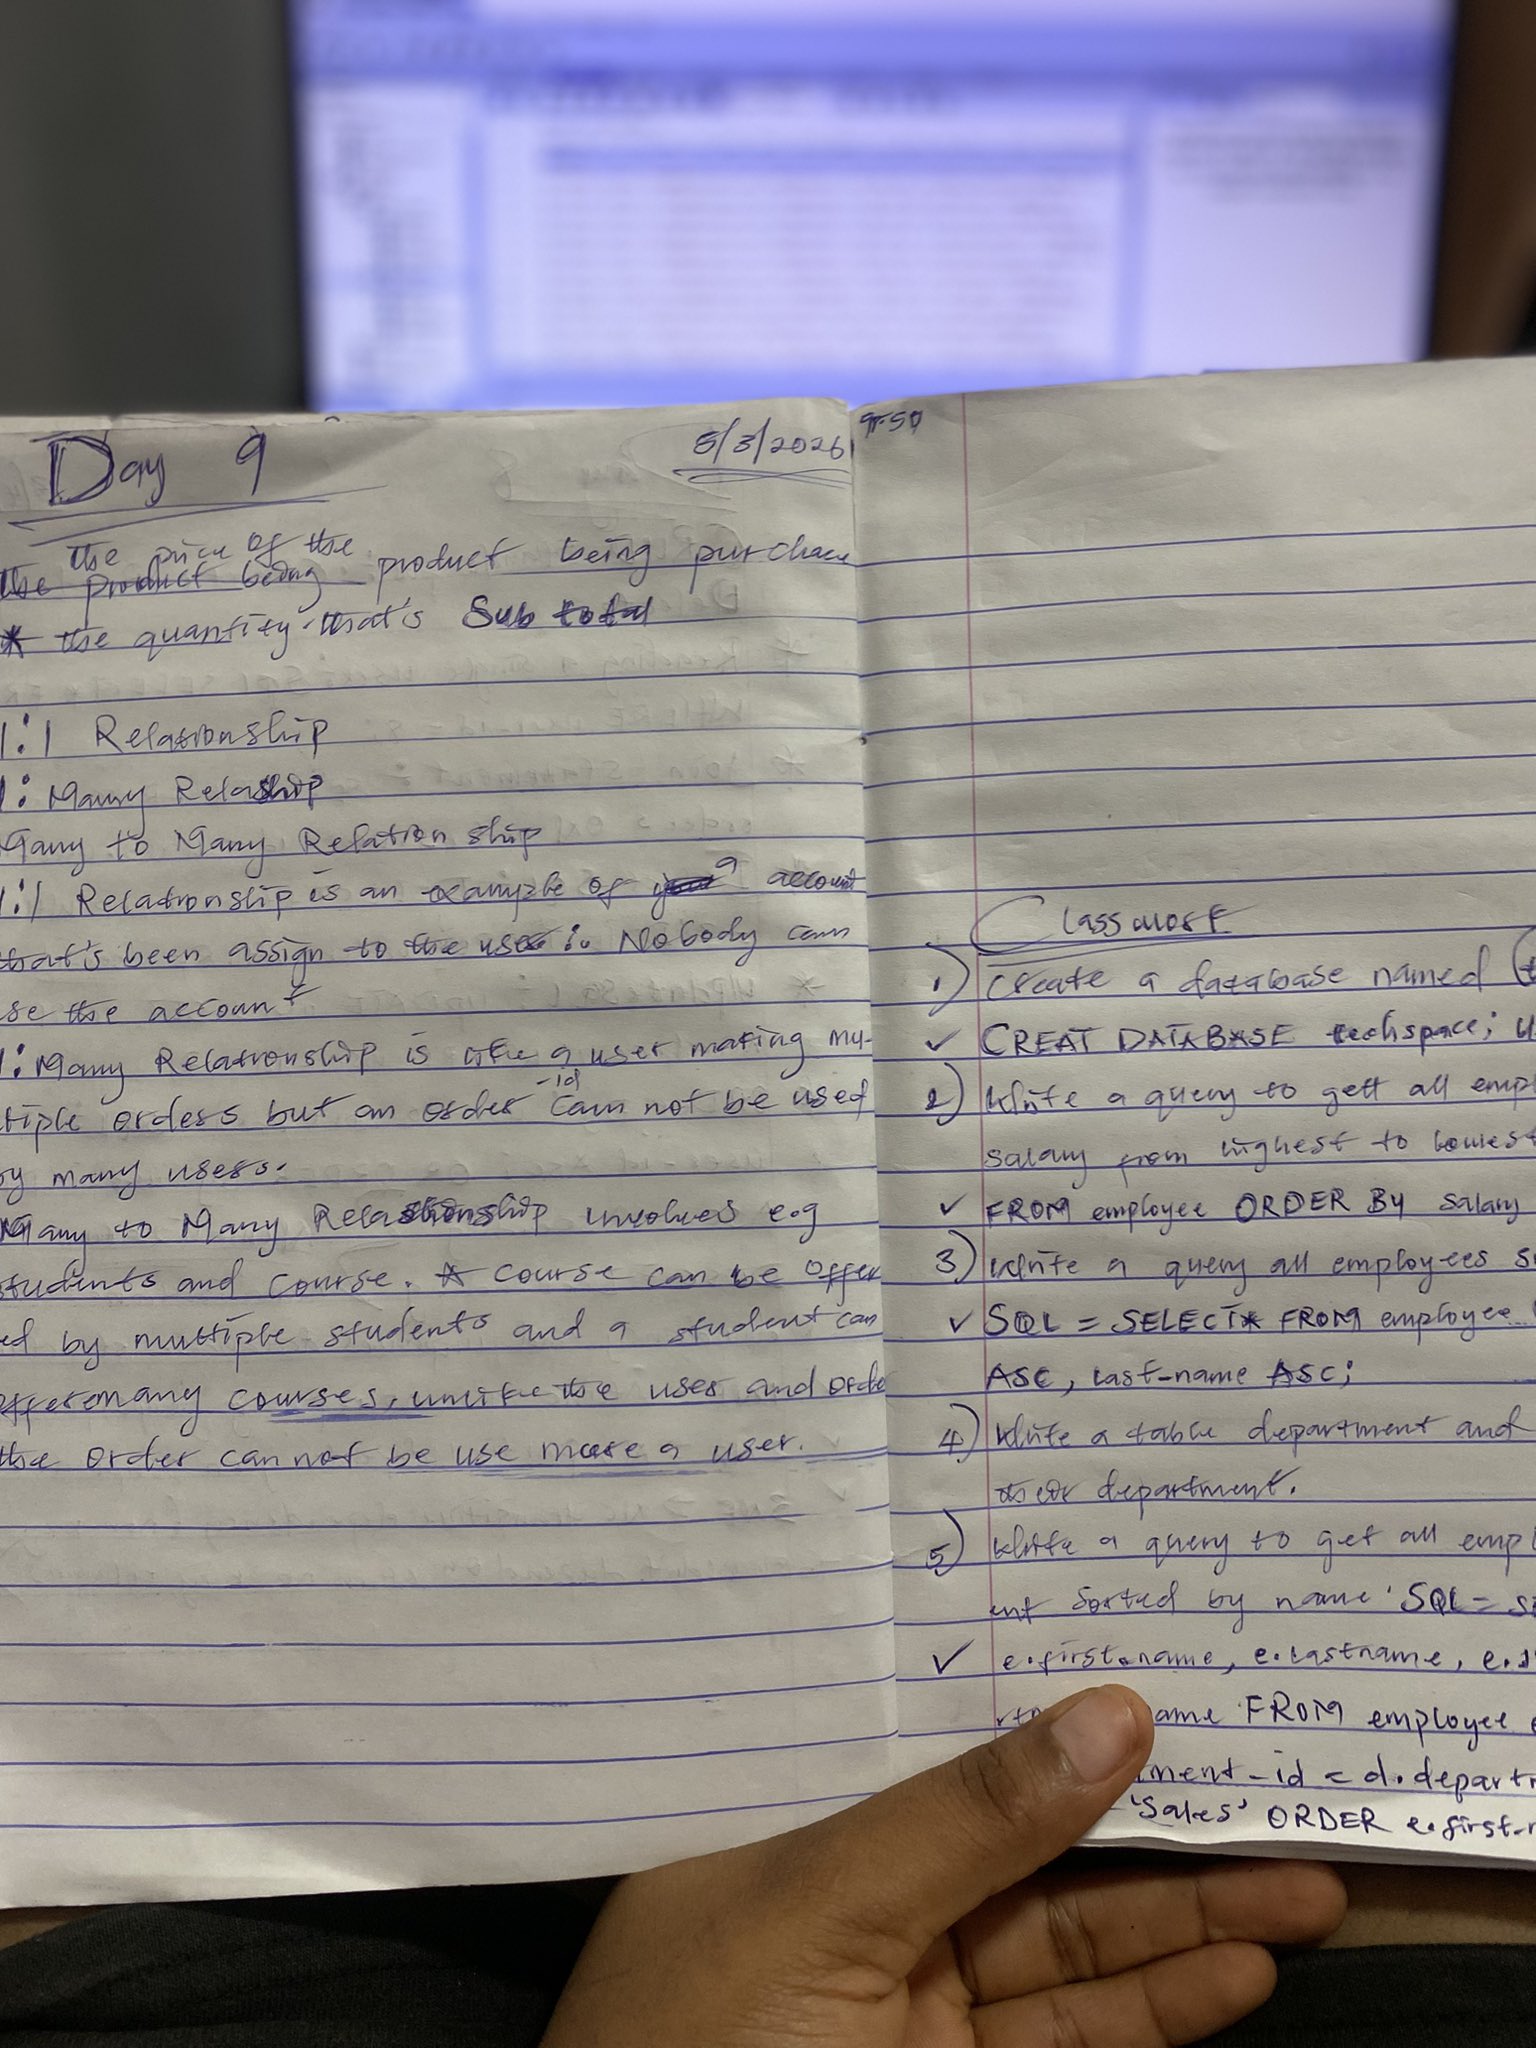 Day 9
5/3/2026
the price of the
the product being product being purchase
* the quantity that's Sub total
1:1 Relationship
1: Many Relaship
Many to Many Relation ship
1:1 Relationship is an example of a account
that's been assign to the user :. Nobody can
se the account
1: Many Relationship is like a user making mu-
tiple orders but an order -id can not be used
by many users.
Many to Many Relationship involves e.g
students and course. A course can be offer
ed by multiple students and a student can
offer many courses, unlike the user and orde
the order cannot be use more a user.
Classwork
1) Create a database named
✓ CREAT DATABASE techspace; U
2) Write a query to gett all empl
salary from highest to lowest
✓ FROM employee ORDER By salary
3) Write a query all employees s
✓ SQL = SELECT* FROM employee
ASC, last-name ASC;
4) Write a table department and
their department.
5) Write a query to get all empl
ent sorted by name. SQL = SE
✓ e.first_name, e.lastname, e.
ame FROM employee e
ment-id = d.departm
'Sales' ORDER e.first-n